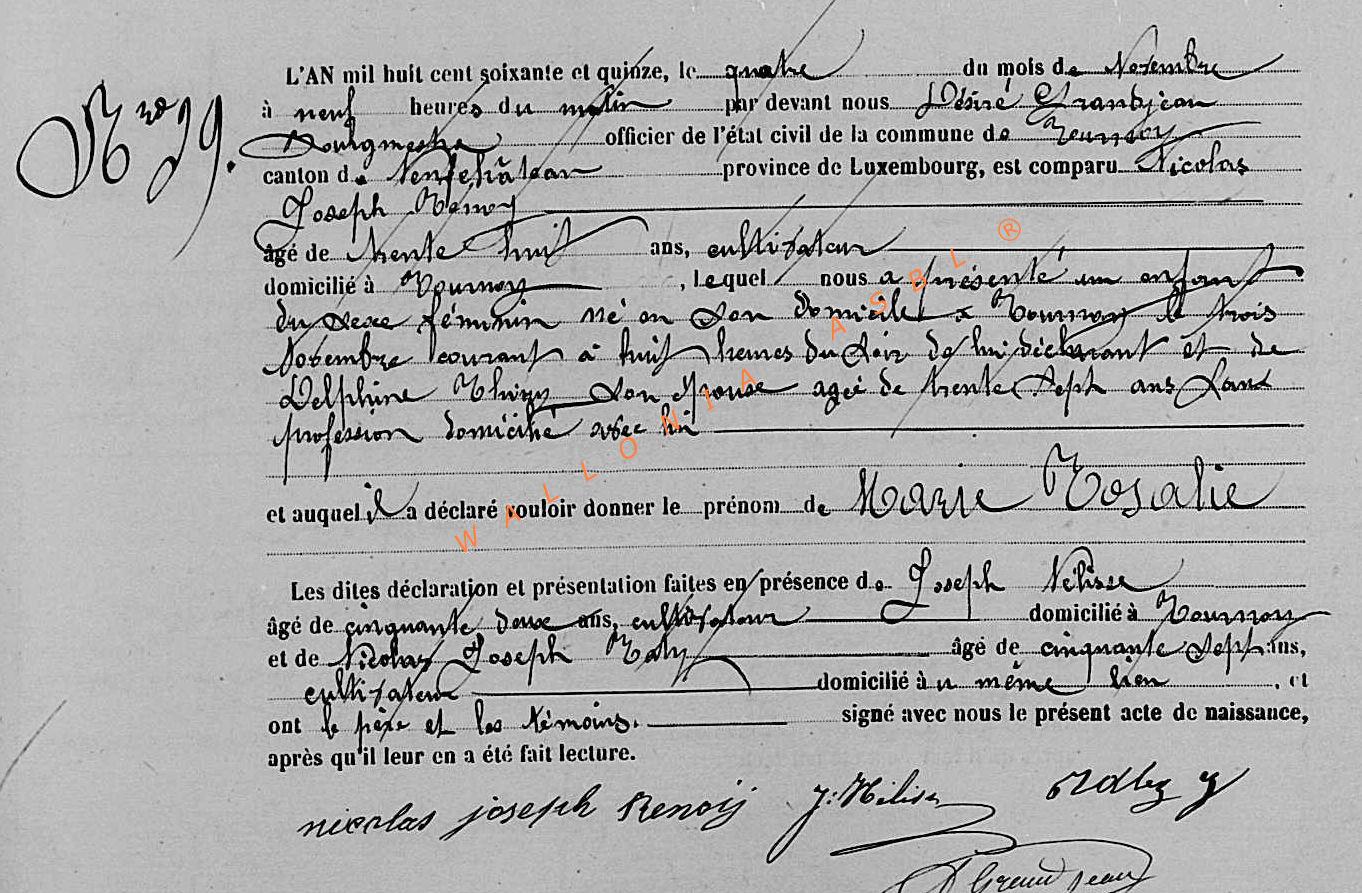 Nro 29.
L'AN mil huit cent soixante et quinze, le quatre du mois de Novembre
à neuf heures du matin par devant nous Désiré Grandjean
Bourgmestre officier de l'état civil de la commune de Tournay
canton de Neufchâteau province de Luxembourg, est comparu Nicolas
Joseph Renoy
âgé de trente huit ans, cultivateur
domicilié à Tournay, lequel nous a présenté un enfant
du sexe féminin né en son domicile à Tournay le trois
Novembre courant à huit heures du soir de lui déclarant et de
Delphine Thiry son épouse agée de trente sept ans sans
profession domicilié avec lui
et auquel il a déclaré vouloir donner le prénom de Marie Rosalie
Les dites déclaration et présentation faites en présence de Joseph Nélisse
âgé de cinquante deux ans, cultivateur domicilié à Tournay
et de Nicolas Joseph âgé de cinquante sept ans,
cultivateur domicilié à u même lieu, et
ont le père et les témoins. signé avec nous le présent acte de naissance,
après qu'il leur en a été fait lecture.
nicolas joseph Renoy J: Nélisse
Grandjean
WALLONIA ASBL ®